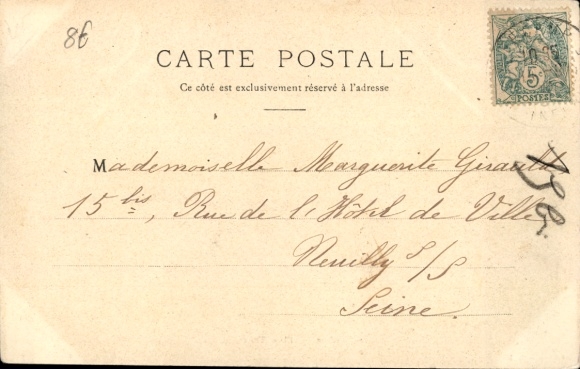 86
CARTE POSTALE
Ce côté est exclusivement réservé à l'adresse
5c
POSTES
Mademoiselle Marguerite Girault
15 bis, Rue de l'Hôtel de Ville
Neuilly s/s
Seine.